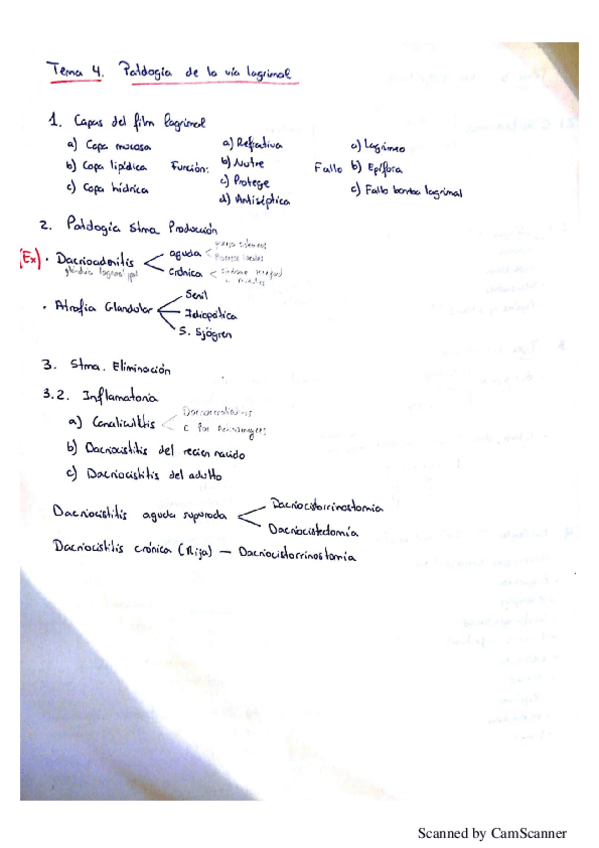 Tema 4. Patología de la vía lagrimal
1. Capas del film lagrimal
a) Capa mucosa
b) Capa lipídica
c) Capa hídrica
Función:
a) Refractiva
b) Nutre
c) Protege
d) Antiséptica
Fallo
a) Lagrimeo
b) Epífora
c) Fallo bomba lagrimal
2. Patología Stma Producción
[Ex) · Dacrioadenitis
aguda
crónica
· Atrofia Glandular
Senil
Idiopática
S. Sjögren
3. Stma. Eliminación
3.2. Inflamatoria
a) Canaliculitis
b) Dacriocistitis del recien nacido
c) Dacriocistitis del adulto
Dacriocistitis aguda supurada
Dacriocistorrinostomia
Dacriocistectomía
Dacriocistitis crónica (Rija) — Dacriocistorrinostomía
Scanned by CamScanner